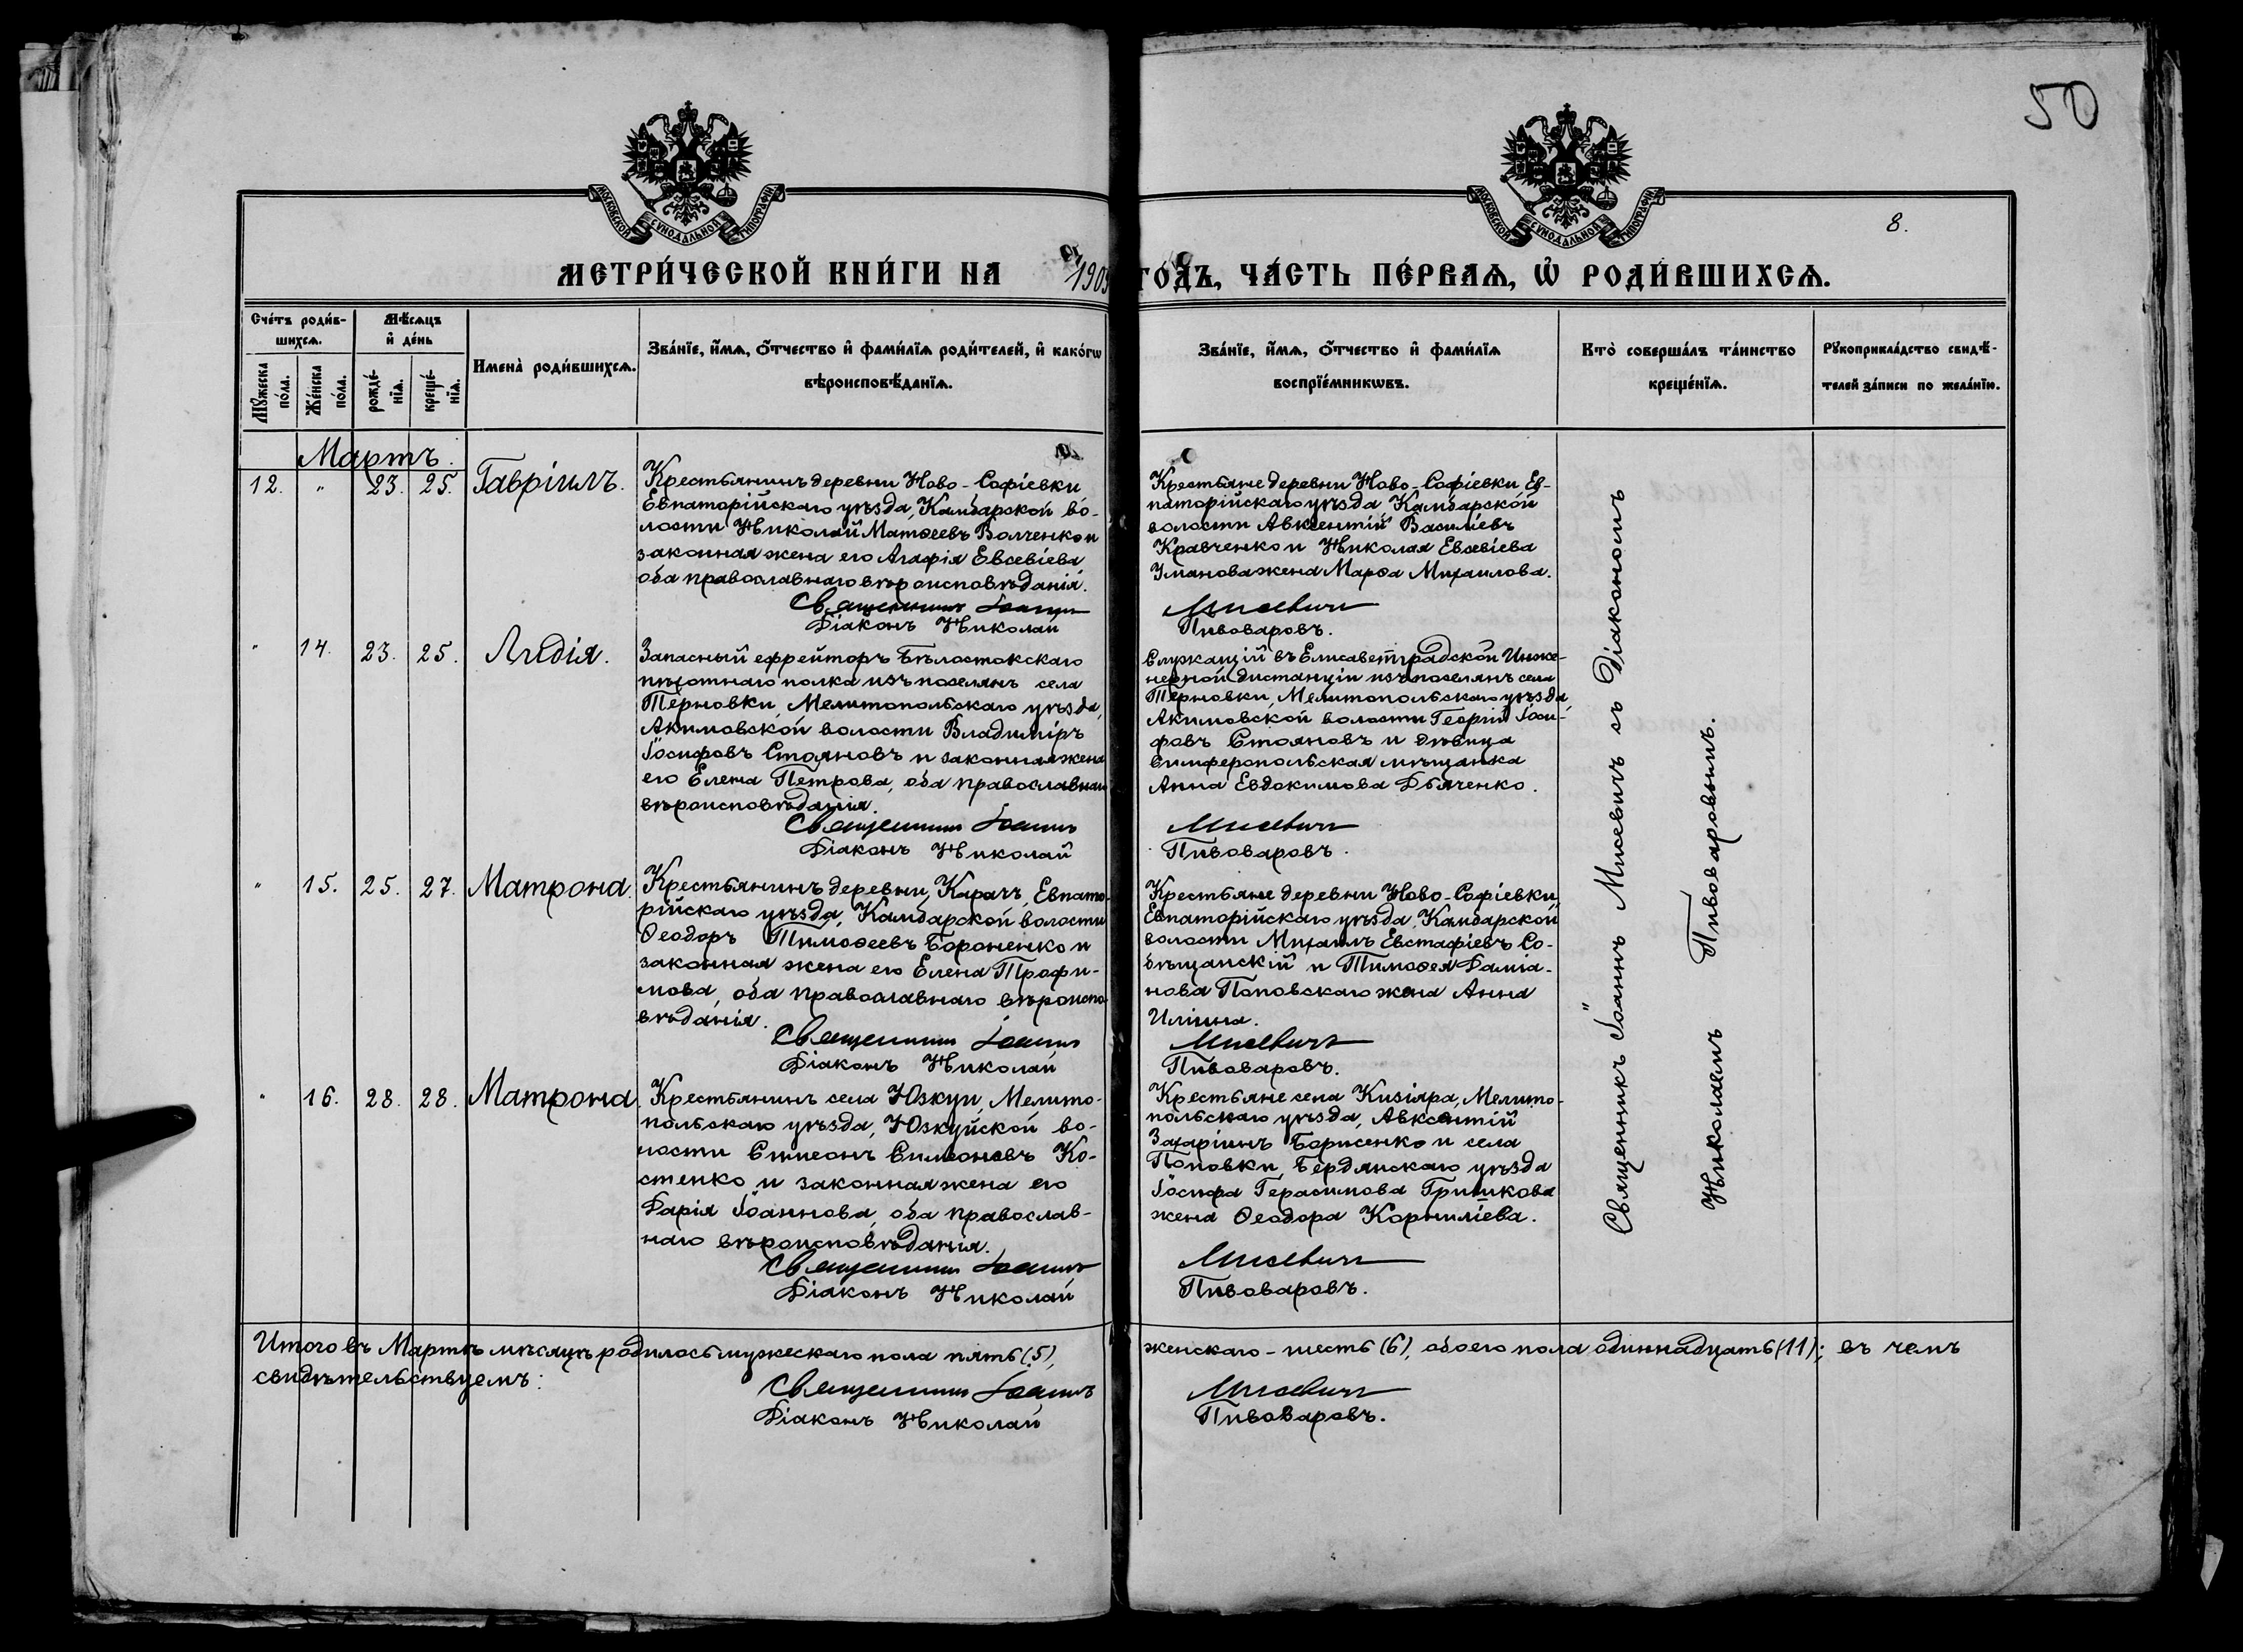 50
8.
МОСКОВСКОЙ СУНОДАЛЬНОЙ ТИПОГРАФІИ
МОСКОВСКОЙ СУНОДАЛЬНОЙ ТИПОГРАФІИ
МЕТРИ́ЧЕСКОЙ КНИ́ГИ НА 1909 ГО́ДЪ, ЧА́СТЬ ПЕ́РВАѦ, Ѽ РОДИ́ВШИХСѦ.
Сче́тъ роди́в-
шихсѧ.
Мꙋ́жеска по́ла.
Же́нска по́ла.
Мѣ́сѧцъ
и҆ де́нь
рожде́-
нїѧ.
креще́-
нїѧ.
Имена̀ роди́вшихсѧ.
Зва́нїе, и҆́мѧ, ѻ҆́тчество и҆ фами́лїѧ роди́телей, и҆ како́гѡ
вѣроисповѣ́данїѧ.
Зва́нїе, и҆́мѧ, ѻ҆́тчество и҆ фами́лїѧ
воспрїе́мникѡвъ.
Кто̀ соверша́лъ та́инство
креще́нїѧ.
Рꙋкоприкла́дство свидѣ́-
телей за́писи по жела́нїю.
Мартъ.
12. " 23. 25. Гавріилъ.
Крестьянинъ деревни Ново-Софіевки
Евпаторійскаго уѣзда, Камбарской во-
лости Николай Матѳеевъ Волченко и
законная жена его Агафія Евсевіева
оба православнаго вѣроисповѣданія.
Священникъ Іоаннъ
Діаконъ Николай
Крестьяне деревни Ново-Софіевки Ев-
паторійскаго уѣзда Камбарской
волости Авксентій Василіевъ
Кравченко и Николая Евсевіева
Уманова жена Марѳа Михаилова.
Мисевичъ
Пивоваровъ.
" 14. 23. 25. Лидія.
Запасный ефрейторъ Бѣлостокскаго
пѣхотнаго полка изъ поселянъ села
Терновки, Мелитопольскаго уѣзда,
Акимовской волости Владиміръ
Іосифовъ Стояновъ и законная жена
его Елена Петрова, оба православнаго
вѣроисповѣданія.
Священникъ Іоаннъ
Діаконъ Николай
Служащій въ Елисаветградской Инже-
нерной дистанціи изъ поселянъ села
Терновки, Мелитопольскаго уѣзда,
Акимовской волости Георгій Іоси-
фовъ Стояновъ и дѣвица
симферопольская мѣщанка
Анна Евдокимова Дьяченко.
Мисевичъ
Пивоваровъ.
" 15. 25. 27. Матрона.
Крестьянинъ деревни, Карачъ, Евпато-
рійскаго уѣзда, Камбарской волости
Ѳеодоръ Тимоѳеевъ Бороненко и
законная жена его Елена Трофи-
мова, оба православнаго вѣроиспо-
вѣданія.
Священникъ Іоаннъ
Діаконъ Николай
Крестьяне деревни Ново-Софіевки,
Евпаторійскаго уѣзда, Камбарской
волости Михаилъ Евстафіевъ Со-
бѣщанскій и Тимоѳея Даміа-
нова Поповскаго жена Анна
Иліина.
Мисевичъ
Пивоваровъ.
" 16. 28. 28. Матрона.
Крестьянинъ села Юзкуи, Мелито-
польскаго уѣзда, Юзкуйской во-
лости Симеонъ Симеоновъ Ко-
стенко и законная жена его
Дарія Іоаннова, оба православ-
наго вѣроисповѣданія.
Священникъ Іоаннъ
Діаконъ Николай
Крестьяне села Кизіяра, Мелито-
польскаго уѣзда, Авксентій
Захаріинъ Борисенко и села
Поповки, Бердянскаго уѣзда
Іосифа Герасимова Гришкова
жена Ѳеодора Корниліева.
Мисевичъ
Пивоваровъ.
Священникъ Іоаннъ Мисевичъ съ Діакономъ
Николаемъ Пивоваровымъ.
Итого въ Мартѣ мѣсяцѣ родилось мужескаго пола пять (5), женскаго - шесть (6), обоего пола одиннадцать (11); въ чемъ
свидѣтельствуемъ:
Священникъ Іоаннъ Мисевичъ
Діаконъ Николай Пивоваровъ.